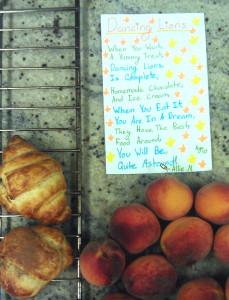 Dancing Lions
When You Want
A Yummy Treat
Dancing Lions,
Is Complete,
Homemade Chocolate,
And Ice Cream
When You Eat It
You Are In A Dream,
They Have The Best
Food Around,
You Will Be,
Quite Astound!
Allie M.